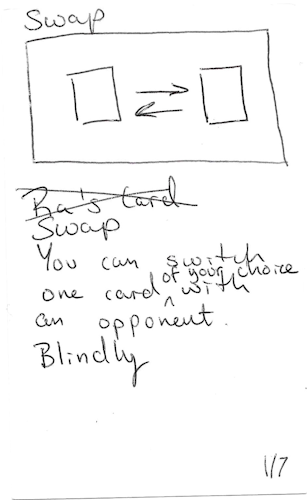 Swap
Ra's Card
Swap
You can switch
one card of your choice with
an opponent.
Blindly
1/7